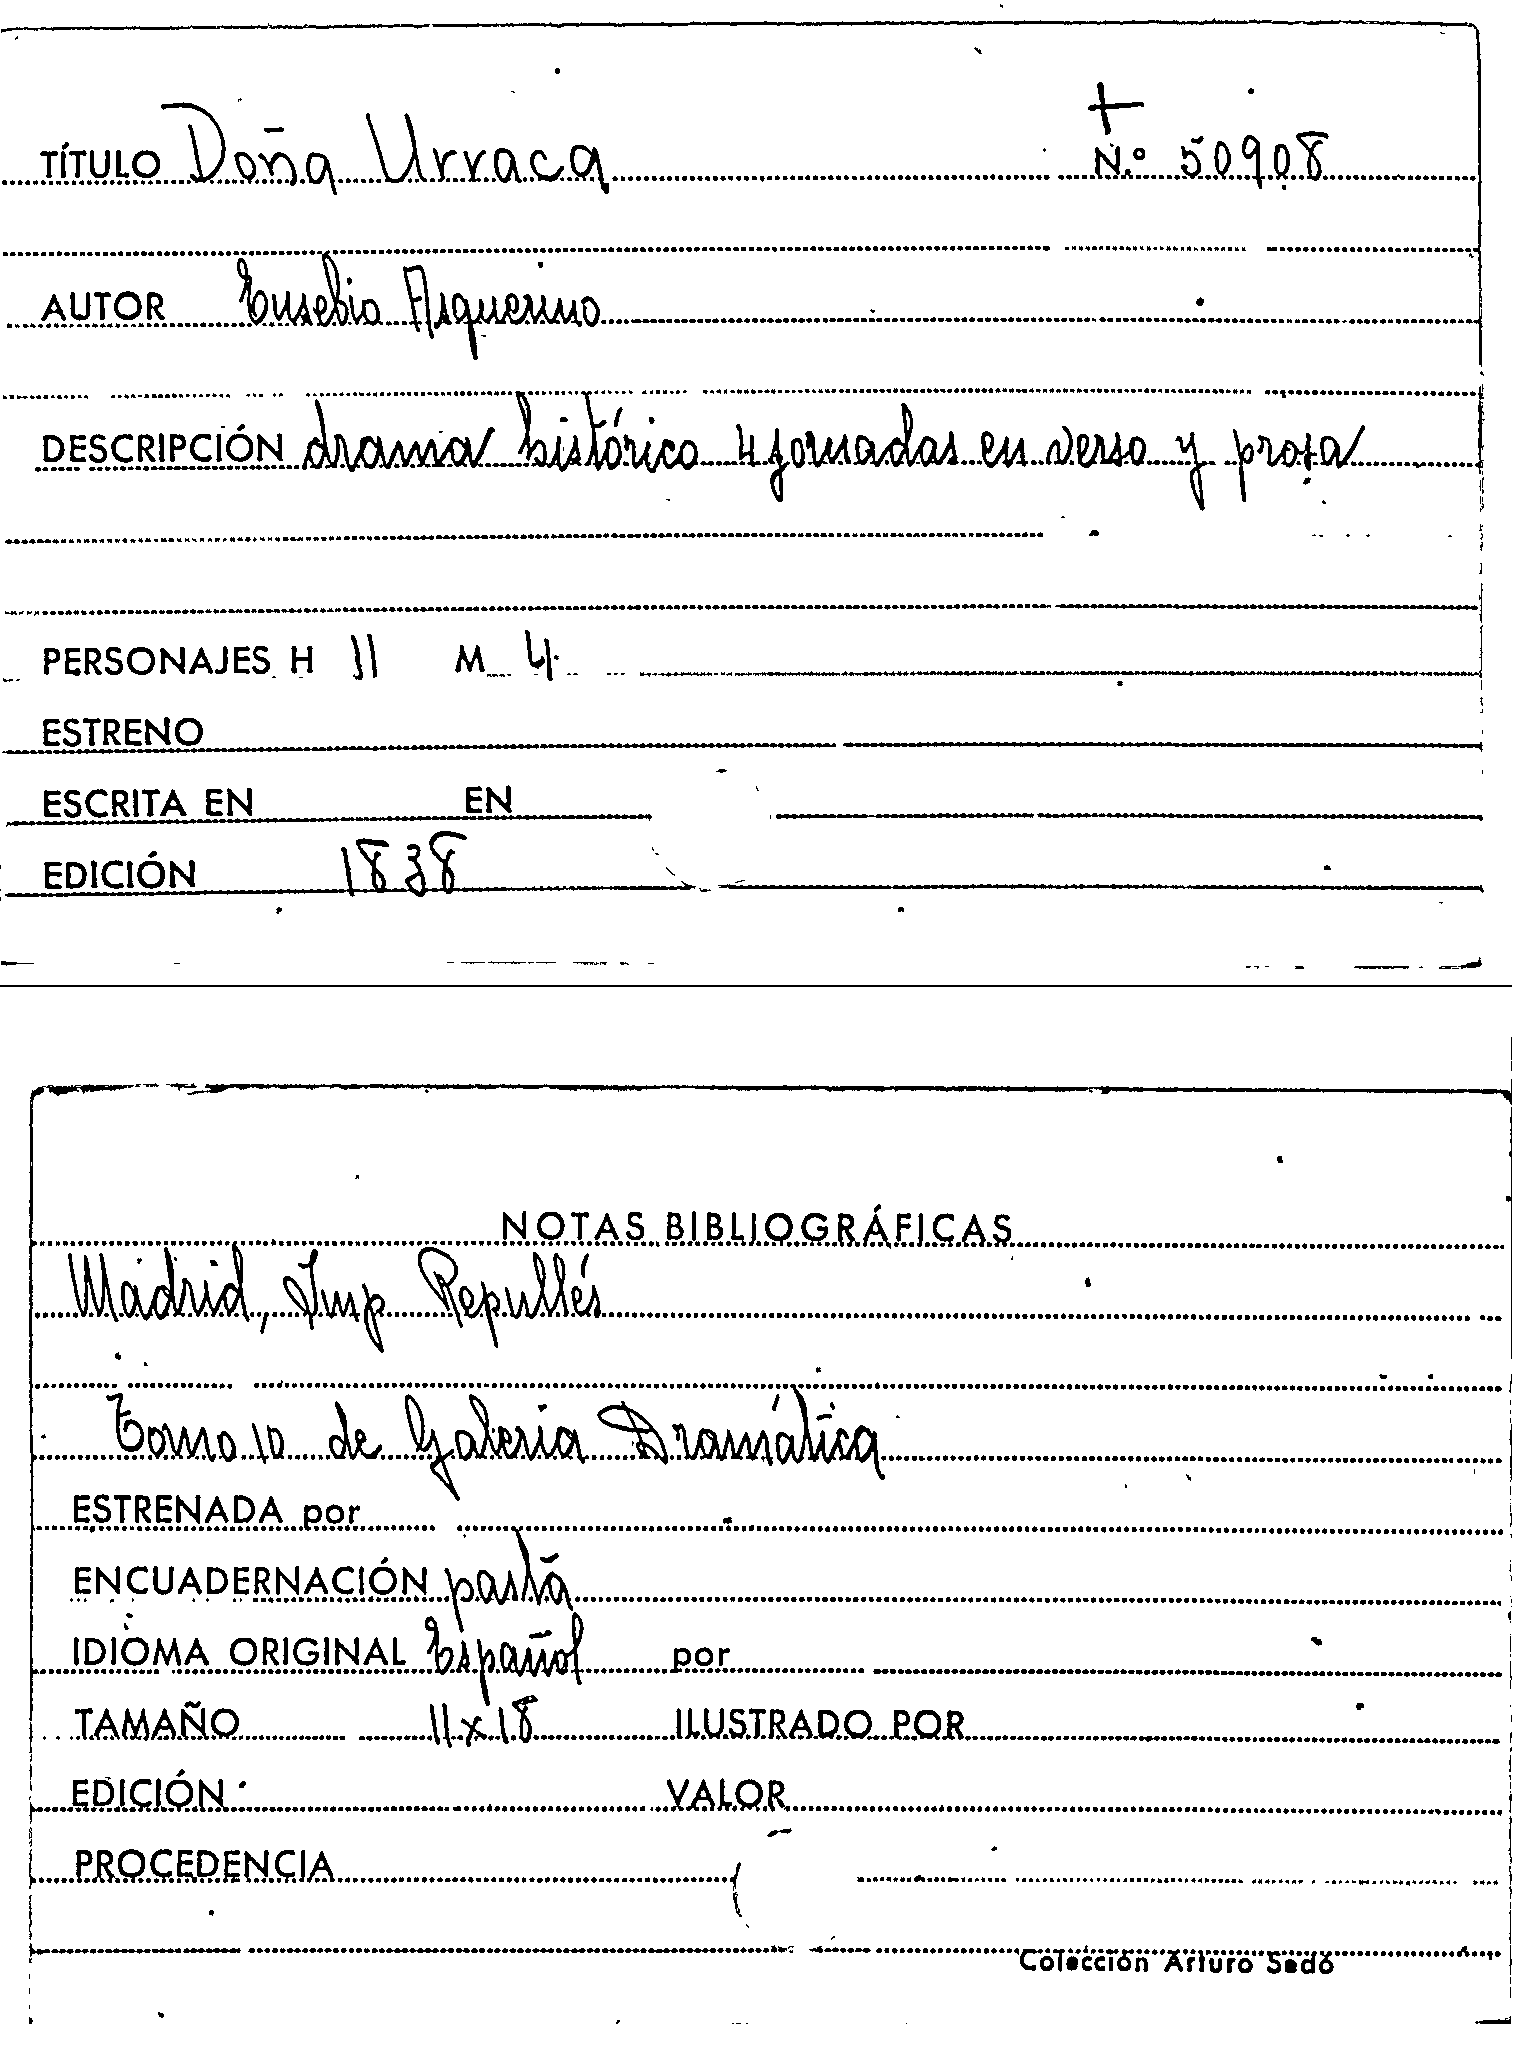 +
TÍTULO Doña Urraca N.º 50908
AUTOR Eusebio Asquerino
DESCRIPCIÓN drama histórico 4 jornadas en verso y prosa
PERSONAJES H 11 M 4
ESTRENO
ESCRITA EN EN
EDICIÓN 1838
NOTAS BIBLIOGRÁFICAS
Madrid, Imp Repullés
Tomo 10 de Galeria Dramática
ESTRENADA por
ENCUADERNACIÓN pasta
IDIOMA ORIGINAL Español por
TAMAÑO 11x18 ILUSTRADO POR
EDICIÓN VALOR
PROCEDENCIA
Colección Arturo Sedó